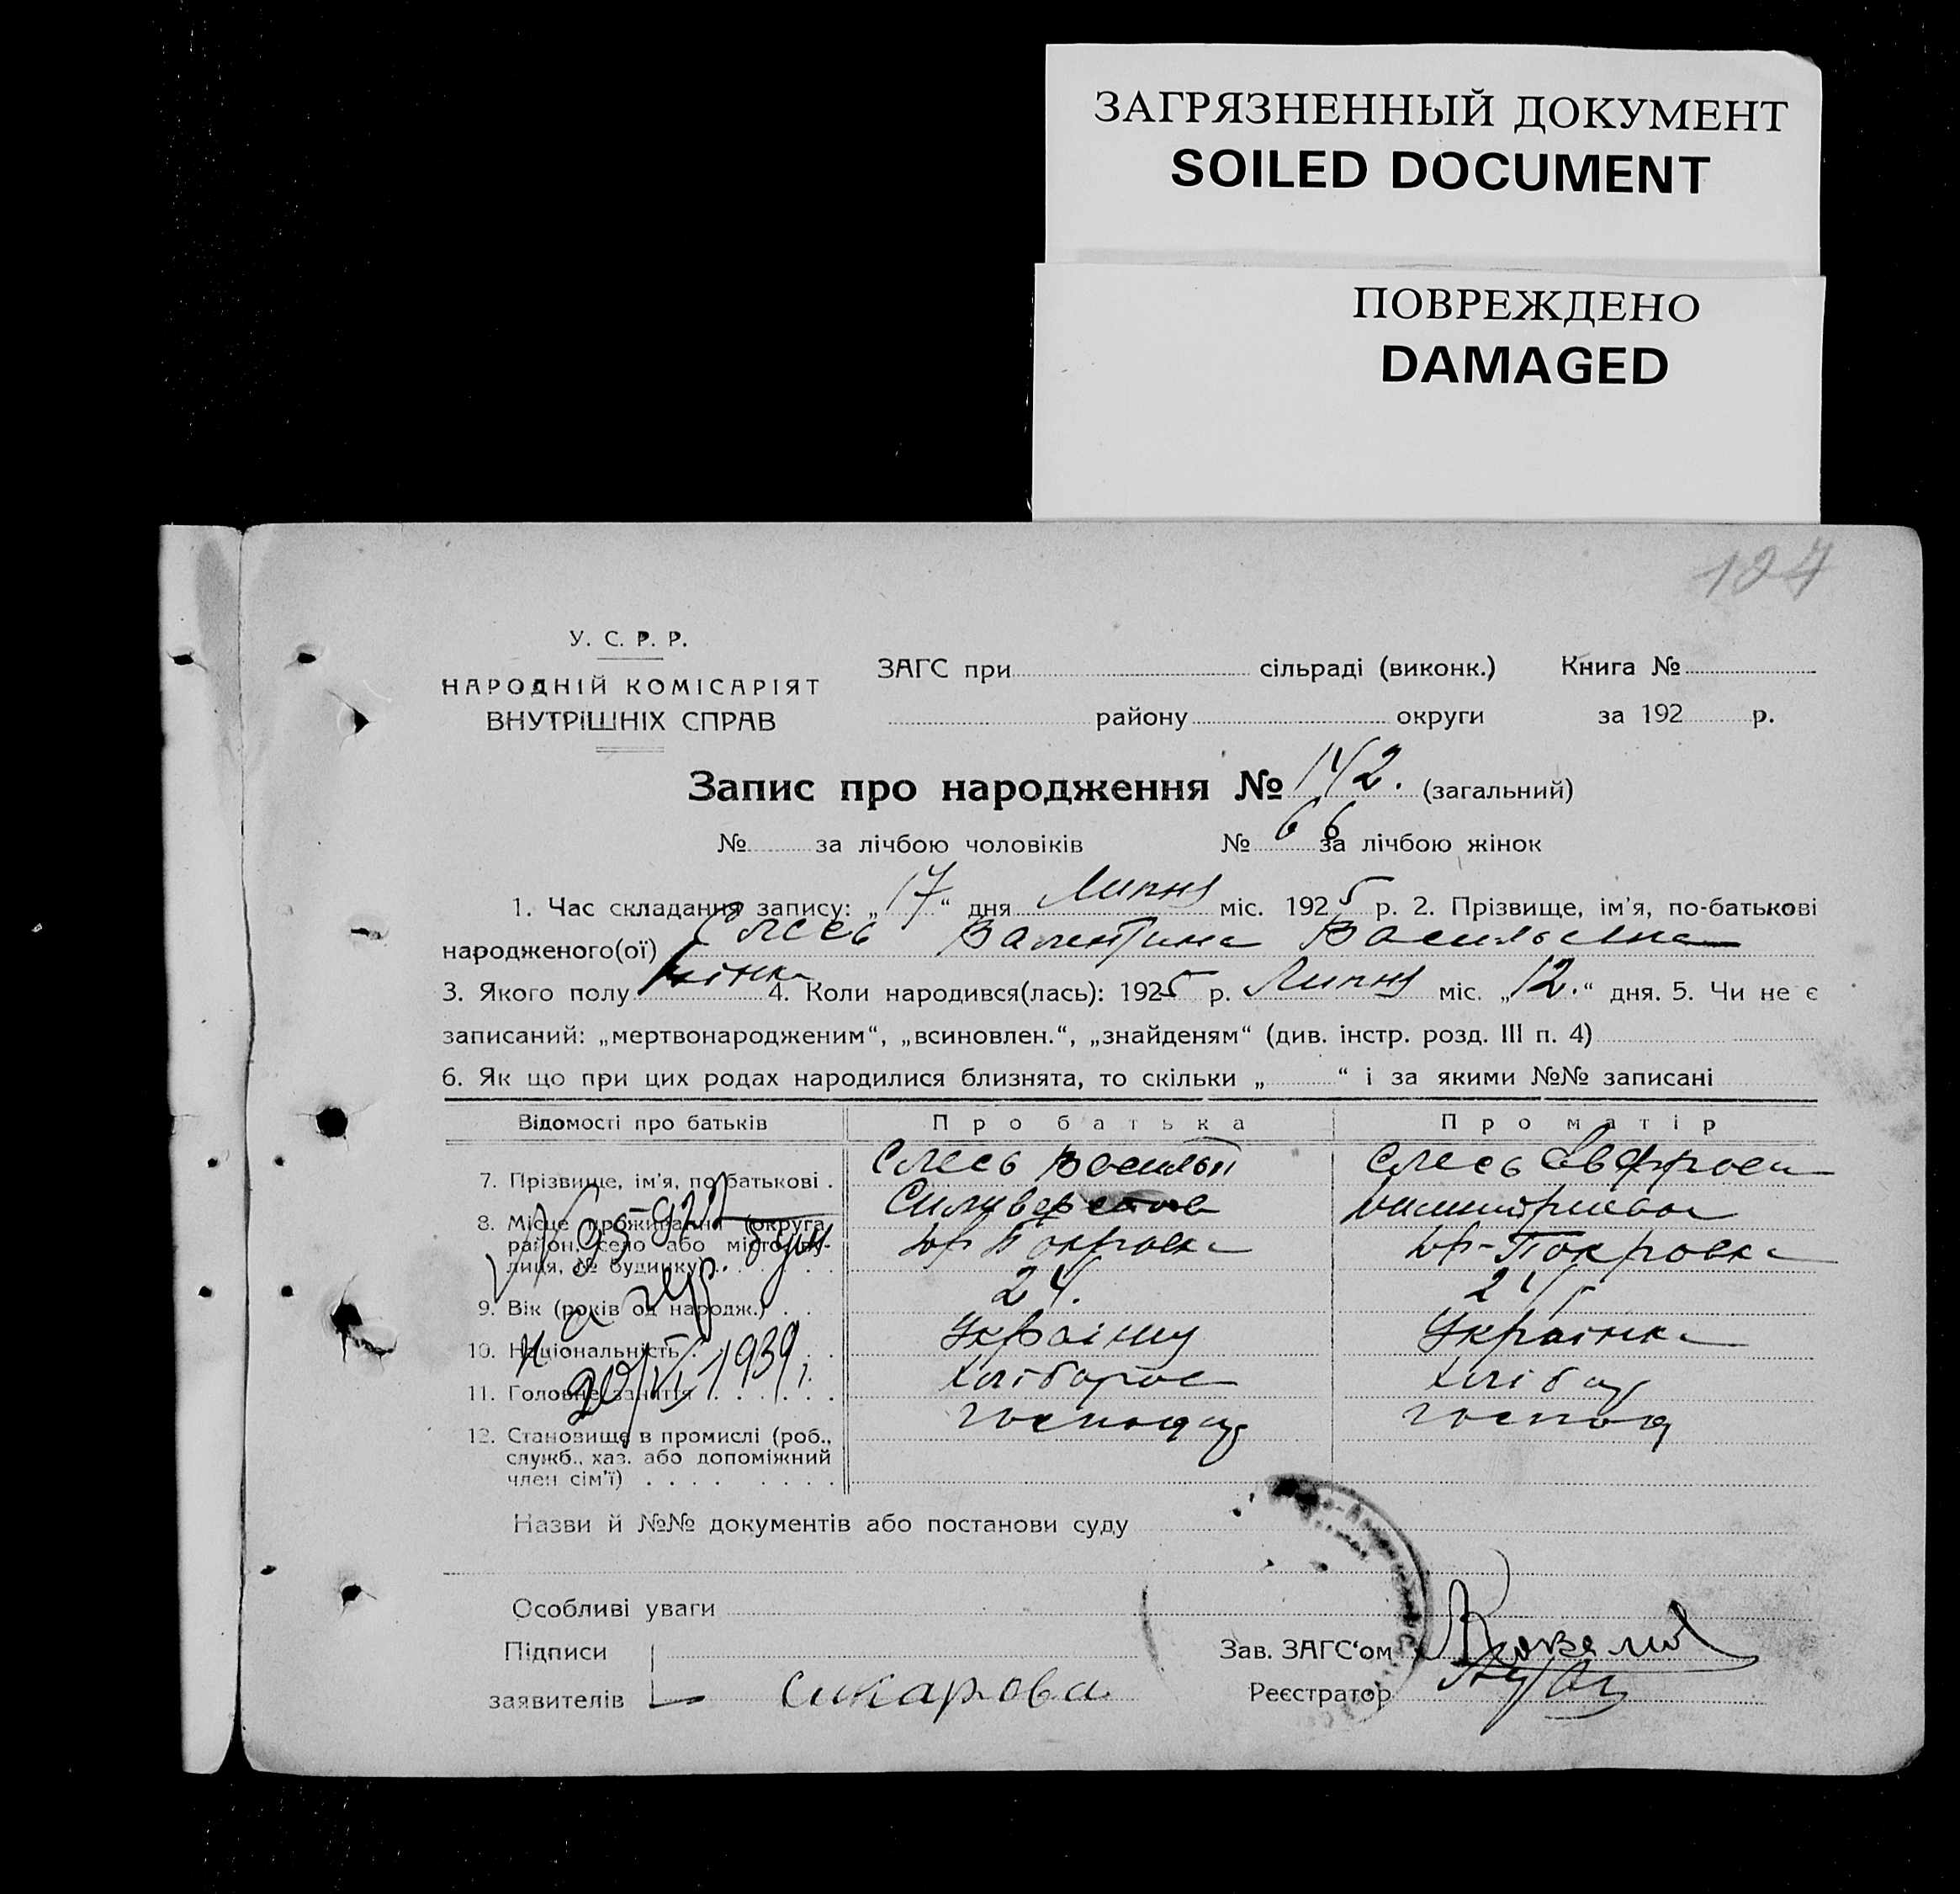 ЗАГРЯЗНЕННЫЙ ДОКУМЕНТ
SOILED DOCUMENT
ПОВРЕЖДЕНО
DAMAGED
У. С. Р. Р.
НАРОДНІЙ КОМІСАРІЯТ
ВНУТРІШНІХ СПРАВ
ЗАГС при сільраді (виконк.) Книга №
району округи за 192 р.
Запис про народження № 142. (загальний)
№ за лічбою чоловіків № 66 за лічбою жінок
1. Час складання запису: „17“ дня Липня міс. 1925 р. 2. Прізвище, ім'я, по-батькові
народженого(ої) Слесь Валентина Васильевна
3. Якого полу жінка 4. Коли народився(лась): 1925 р. Липня міс. „12.“ дня. 5. Чи не є
записаний: „мертвонародженим“, „всиновлен.“, „знайденям“ (див. інстр. розд. III п. 4)
6. Як що при цих родах народилися близнята, то скільки „ “ і за якими №№ записані
Відомості про батьків Про батька Про матір
7. Прізвище, ім'я, по батькові . Слесь Василь Слесь Евфроси
8. Місце проживання (округа, район, село або місто, вулиця, № будинку) Покровка Покровка
9. Вік (років од народж.) . . 24. 24
10. Національність . . . Українц Українка
11. Головне заняття . . . . . . Хлібороб Хлібор
12. Становище в промислі (роб., господар господ
служб., хаз. або допоміжний
член сім'ї) . . . . . . . .
20/VI 1939
Назви й №№ документів або постанови суду
Особливі уваги
Підписи Зав. ЗАГС'ом
заявителів Реєстратор